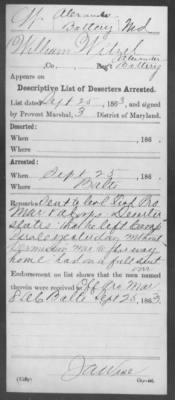 W. Alexander
Battery Md
William Witzel
, Co. , Reg't Alexander Battery
Appears on
Descriptive List of Deserters Arrested.
List dated Sept 25, 1863, and signed
by Provost Marshal, 3 District of Maryland.
Deserted:
When , 186 .
Where
Arrested:
When Sept 25, 186 .
Where Balto
Remarks: Sent to Col Fish Pro
Mar 8 A Corps. Deserter
states that he left Camp
yesterday without
permission was on his way
home had on a full suit
over
Endorsement on list shows that the men named
therein were received by Off Pro Mar
8 A C Balto Sept 25, 1863.